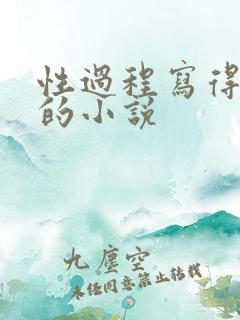 性過程寫得
的小說
九塵空
未經同意禁止轉載